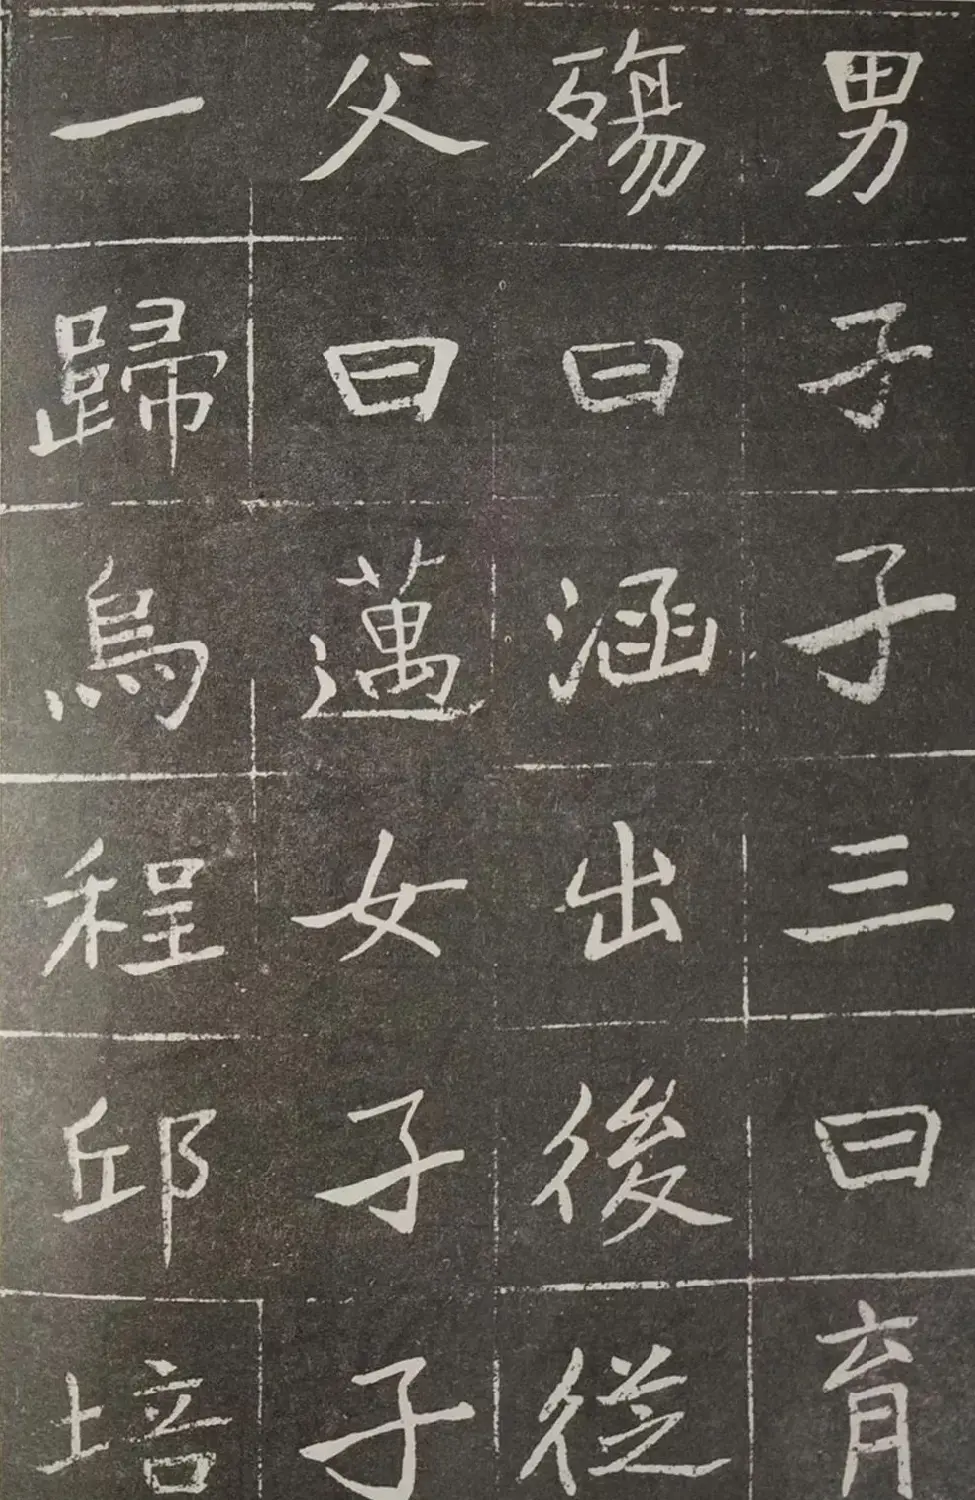 男子子三曰育
殤曰涵出後從
父曰邁女子子
一歸烏程邱培